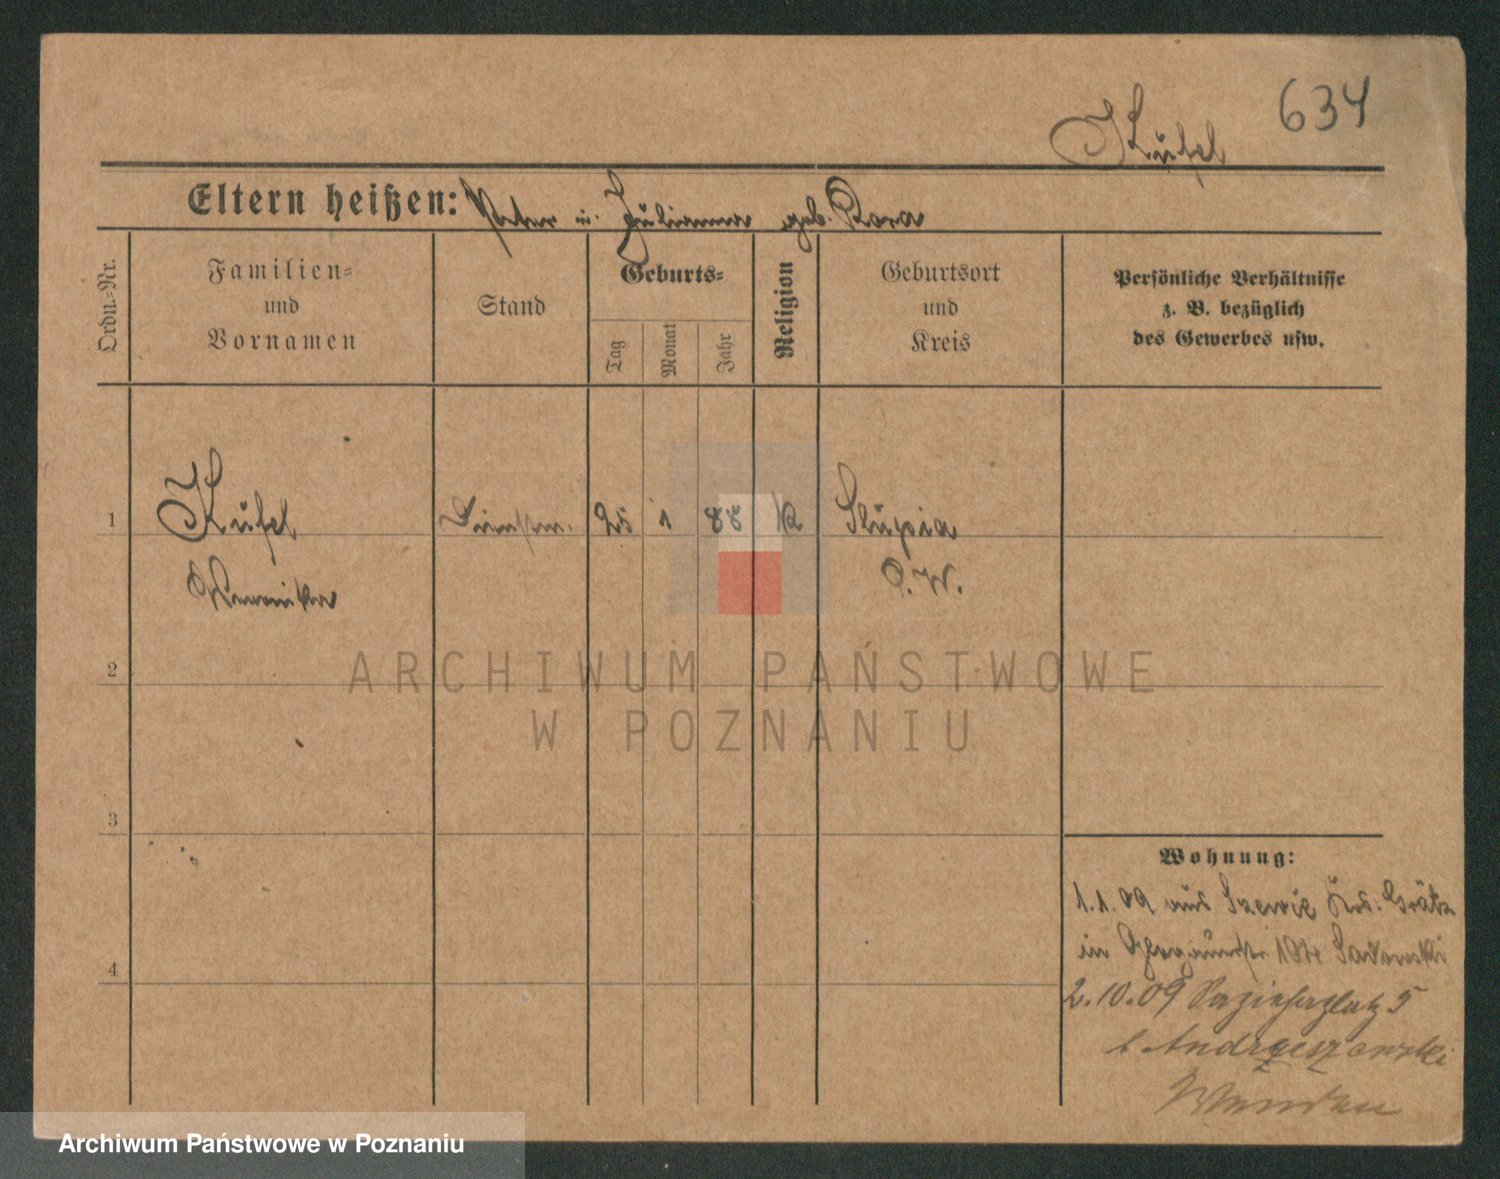 634
Kufel
Eltern heißen: Peter u. Julianna geb. Rora
Ordn.-Nr.
Familien-
und
Vornamen
Stand
Geburts-
Tag
Monat
Jahr
Religion
Geburtsort
und
Kreis
Persönliche Verhältnisse
z. B. bezüglich
des Gewerbes usw.
1
Kufel
25 1 88 k
Slupia
P.W.
Weronika
2
ARCHIWUM PAŃSTWOWE
W POZNANIU
3
Wohnung:
1.1.09 aus Szewce Krs. Grätz
in 104 Sadowski
4
2.10.09 5
b Andrzejewski
Archiwum Państwowe w Poznaniu